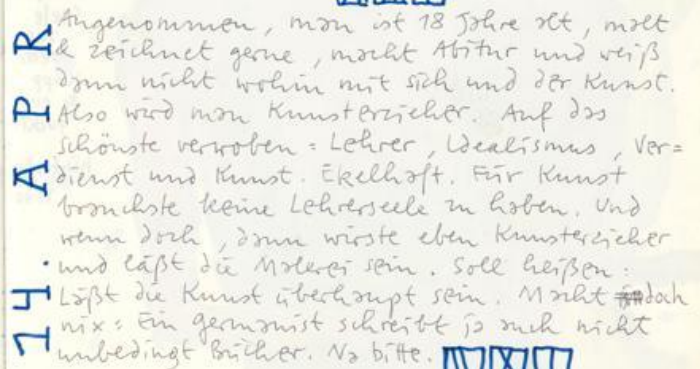 14. APR
Angenommen, man ist 18 Jahre alt, malt
& zeichnet gerne, macht Abitur und weiß
dann nicht wohin mit sich und der Kunst.
Also wird man Kunsterzieher. Auf das
schönste verwoben = Lehrer, Idealismus, Ver=
dienst und Kunst. Ekelhaft. Für Kunst
brauchste keine Lehrerseele zu haben. Und
wenn doch, dann wirste eben Kunsterzieher
und läßt die Malerei sein. Soll heißen:
Läßt die Kunst überhaupt sein. Macht doch
nix: Ein Germanist schreibt ja auch nicht
unbedingt Bücher. Na bitte.